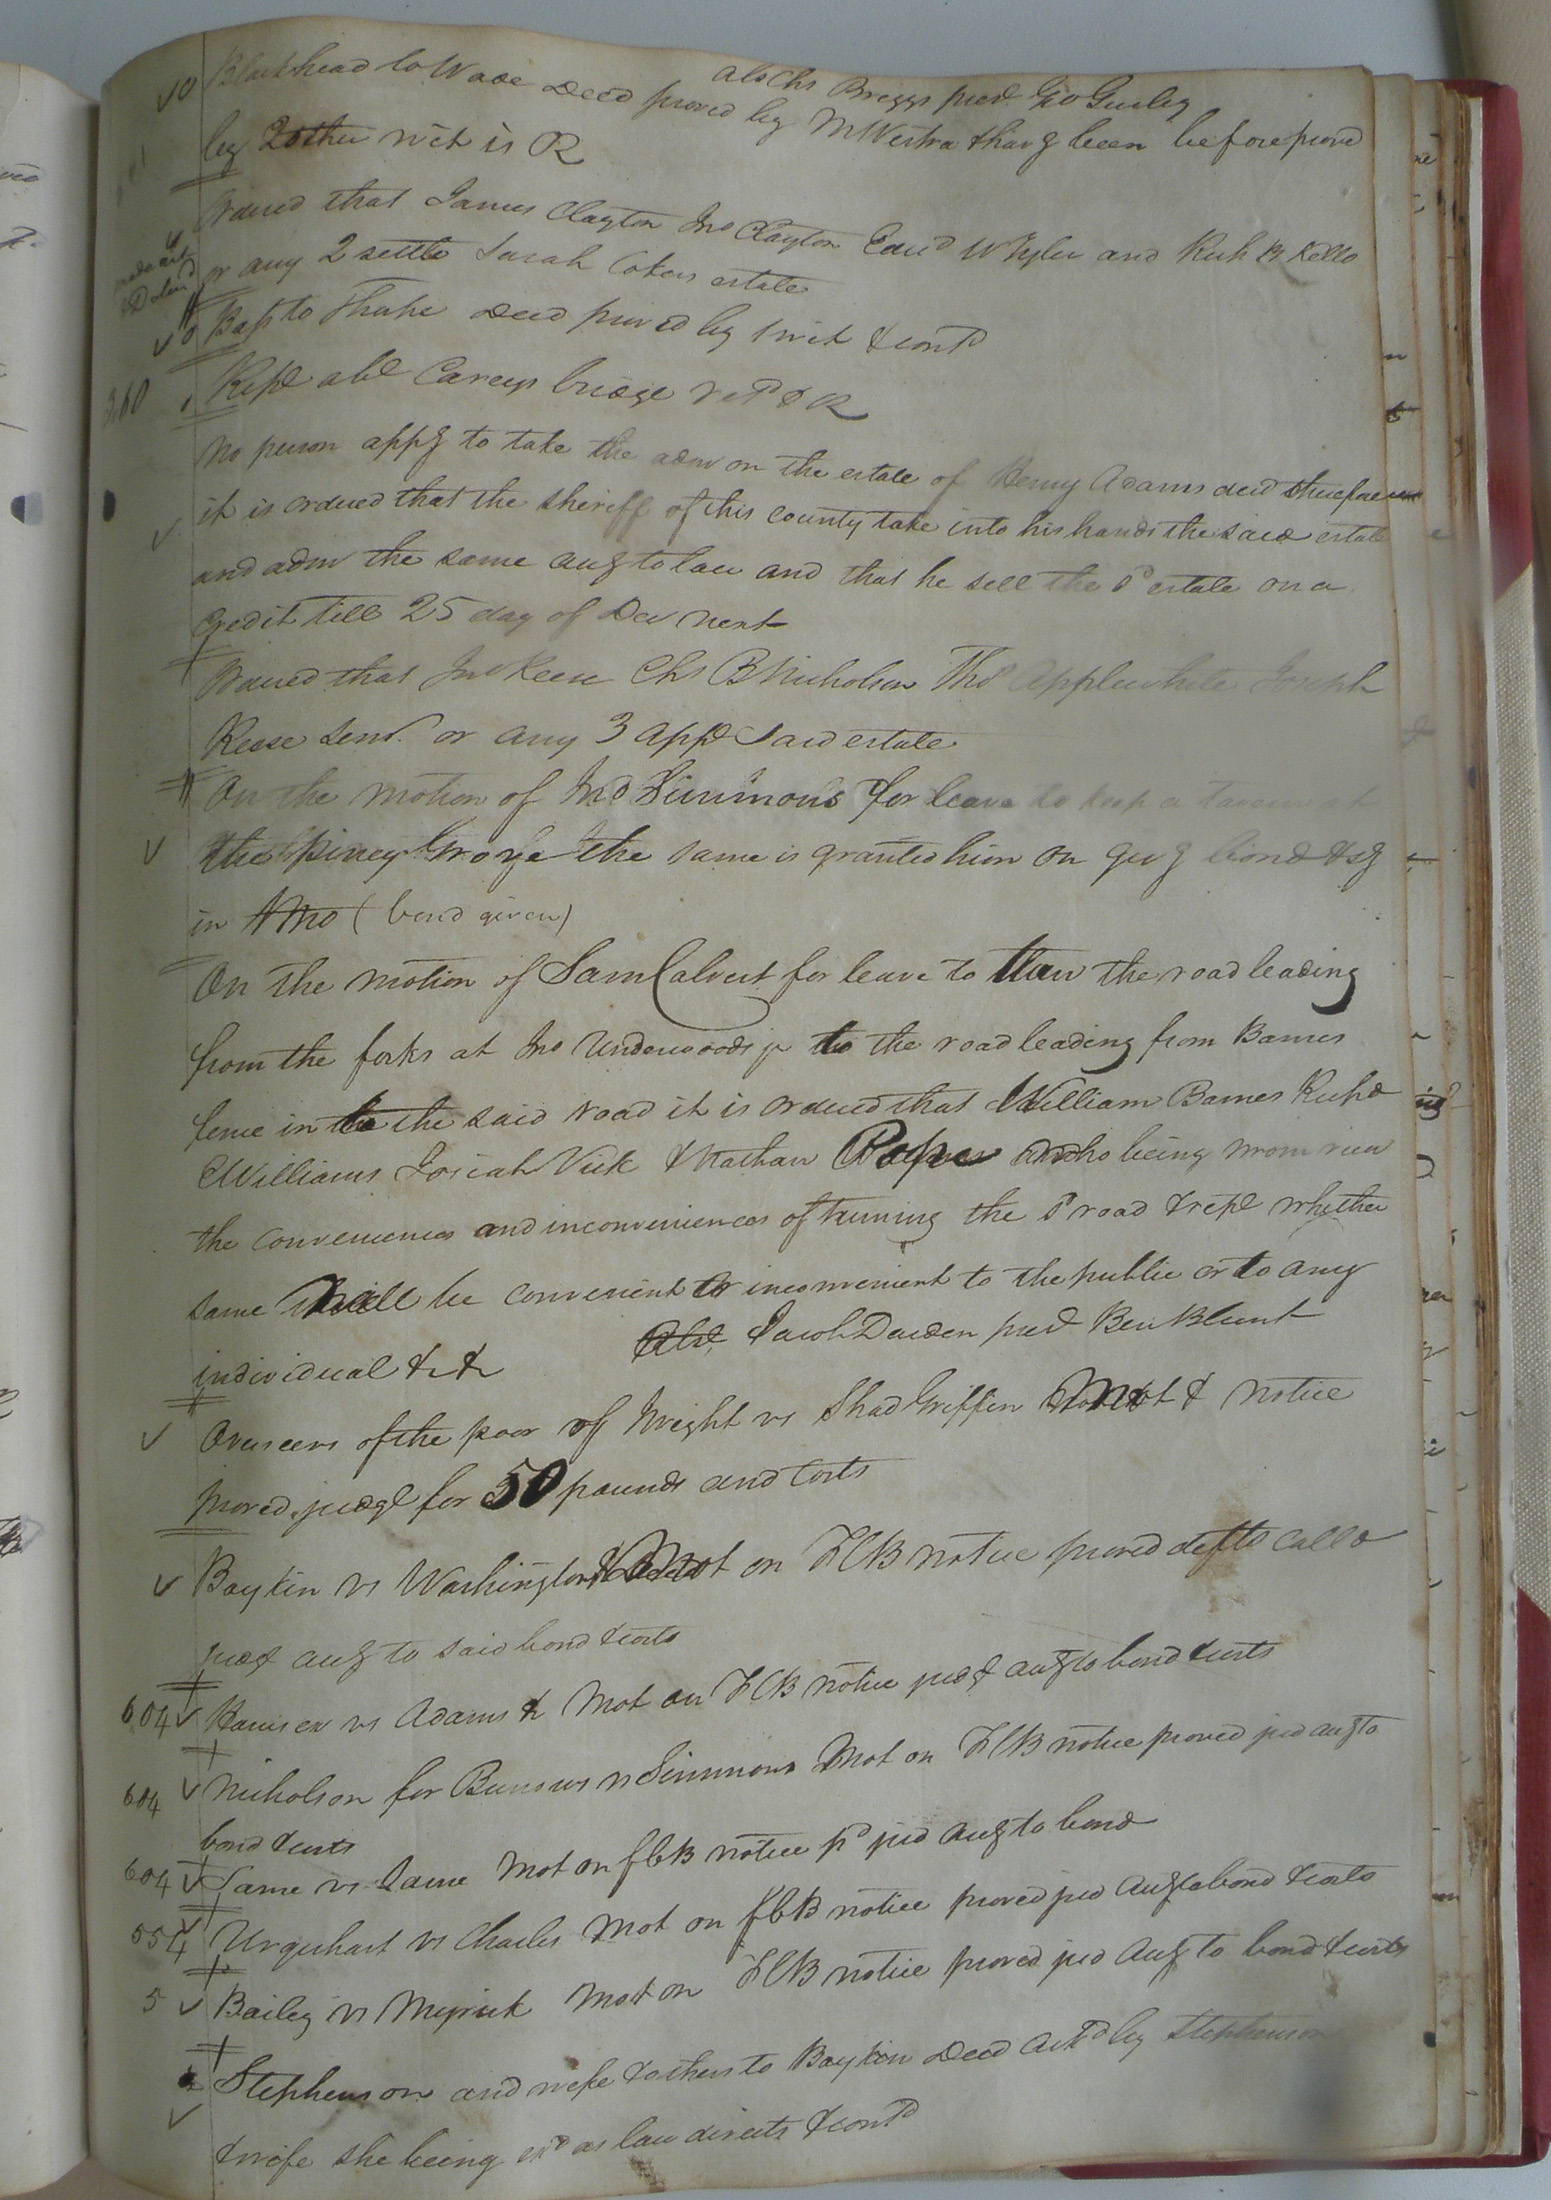 abs Chs Briggs pres Geo Gurley
Blackhead to Wade Deed proved by M Vestra & havg been before proved
by 2 other wit is R
Ordered that James Clayton Jno Clayton Edwd W Tyler and Rich B Kello
or any 2 settle Sarah Cokers estate
Bass to Thorpe Deed proved by 1 wit & contd
360 Rept abt Careys bridge retd & R
No person appg to take the adm on the estate of Henry Adams decd therefore
it is ordered that the sheriff of this county take into his hands the said estate
and adm the same accg to law and that he sell the sd estate on a
Credit till 25 day of Dec next
Ordered that Jno Reese Chs B Nicholson Ths Applewhite Joseph
Reese Senr. or any 3 app said estate
On the motion of Jno Simmons for leave to keep a tavern at
the Piney Grove the same is granted him on givg bond & sg
in (bond given)
On the motion of Sam Calvert for leave to turn the road leading
from the forks at Jno Underwoods jr to the road leading from Barnes
fence in to the said road it is ordered that William Barnes Richd
Williams Josiah Vick & Nathan Pope who being sworn view
the conveniences and inconveniences of turning the sd road & rept whether
same will be convenient or inconvenient to the public or to any
individual &c &c
Abst Jacob Darden prest Ben Blunt
Overseers of the poor of Wright vs Shad Griffin Mot & notice
proved, judgt for 50 pounds and costs
Boykin vs Washington & Mot on FCB notice proved defts calld
judgt accg to said bond & costs
604 Harris ex vs Adams & Mot on FCB notice judgt accg to bond & costs
604 Nicholson for Burrows vs Simmons Mot on FCB notice proved jud accg to
bond & costs
604 Same vs Same Mot on FCB notice pd jud accg to bond
554 Urquhart vs Charles Mot on FCB notice proved jud accg to bond & costs
5 Bailey vs Myrick Mot on FCB notice proved jud accg to bond & costs
Stephenson and wife & others to Boykin Deed ackd by Stephenson
& wife she being exd as law directs & contd